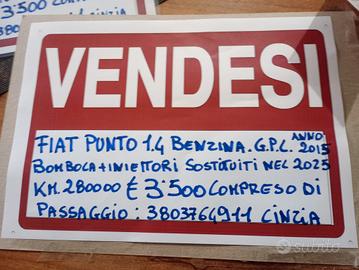 3500 COMPRE
CINZIA
VENDESI
FIAT PUNTO 1.4 BENZINA. G.P.L. ANNO 2015
BOMBOLA + INIETTORI SOSTITUITI NEL 2025
KM. 280000 € 3'500 COMPRESO DI
PASSAGGIO : 3803764911 CINZIA
subito